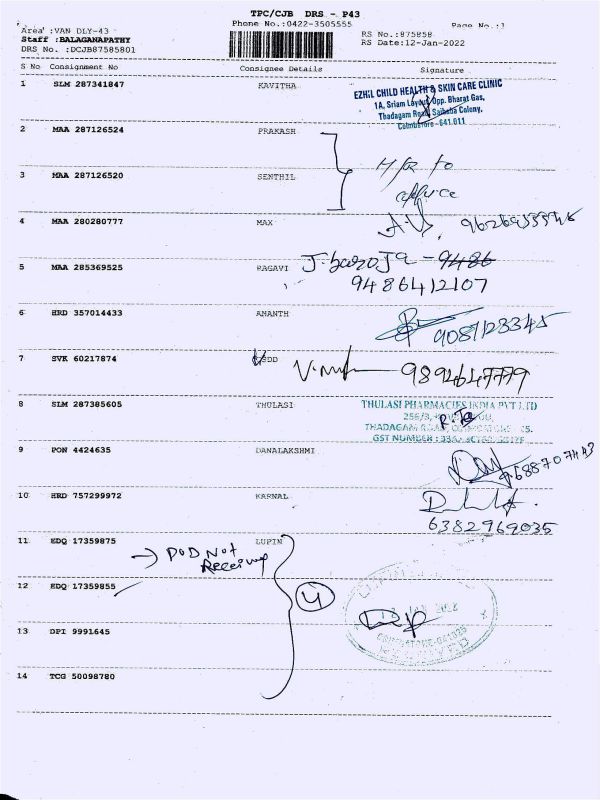 TPC/CJB DRS - P43
Phone No.:0422-3505555
Page No.:1
Area :VAN DLY-43
Staff :BALAGANAPATHY
DRS No. :DCJB87585801
RS No.:875858
RS Date:12-Jan-2022
S No Consignment No Consignee Details Signature
1 SLM 287341847 KAVITHA
EZHIL CHILD HEALTH & SKIN CARE CLINIC
1A, Sriam Layout, Opp. Bharat Gas,
Thadagam Road, Saibaba Colony,
Coimbatore - 641.011
2 MAA 287126524 PRAKASH
H/R to
office
3 MAA 287126520 SENTHIL
4 MAA 280280777 MAX
5 MAA 285369525 RAGAVI
9486
9486412107
6 HRD 357014433 ANANTH
9087123345
7 SVK 60217874
9894647779
8 SLM 287385605 THULASI
THULASI PHARMACIES INDIA PVT LTD
THADAGAM ROAD,
GST NUMBER :
9 PON 4424635 DANALAKSHMI
10 HRD 757299972 KARNAL
6382969035
11 EDQ 17359875 LUPIN
→ POD Not
Receiving
12 EDQ 17359855
4
JAN
13 DPI 9991645
14 TCG 50098780